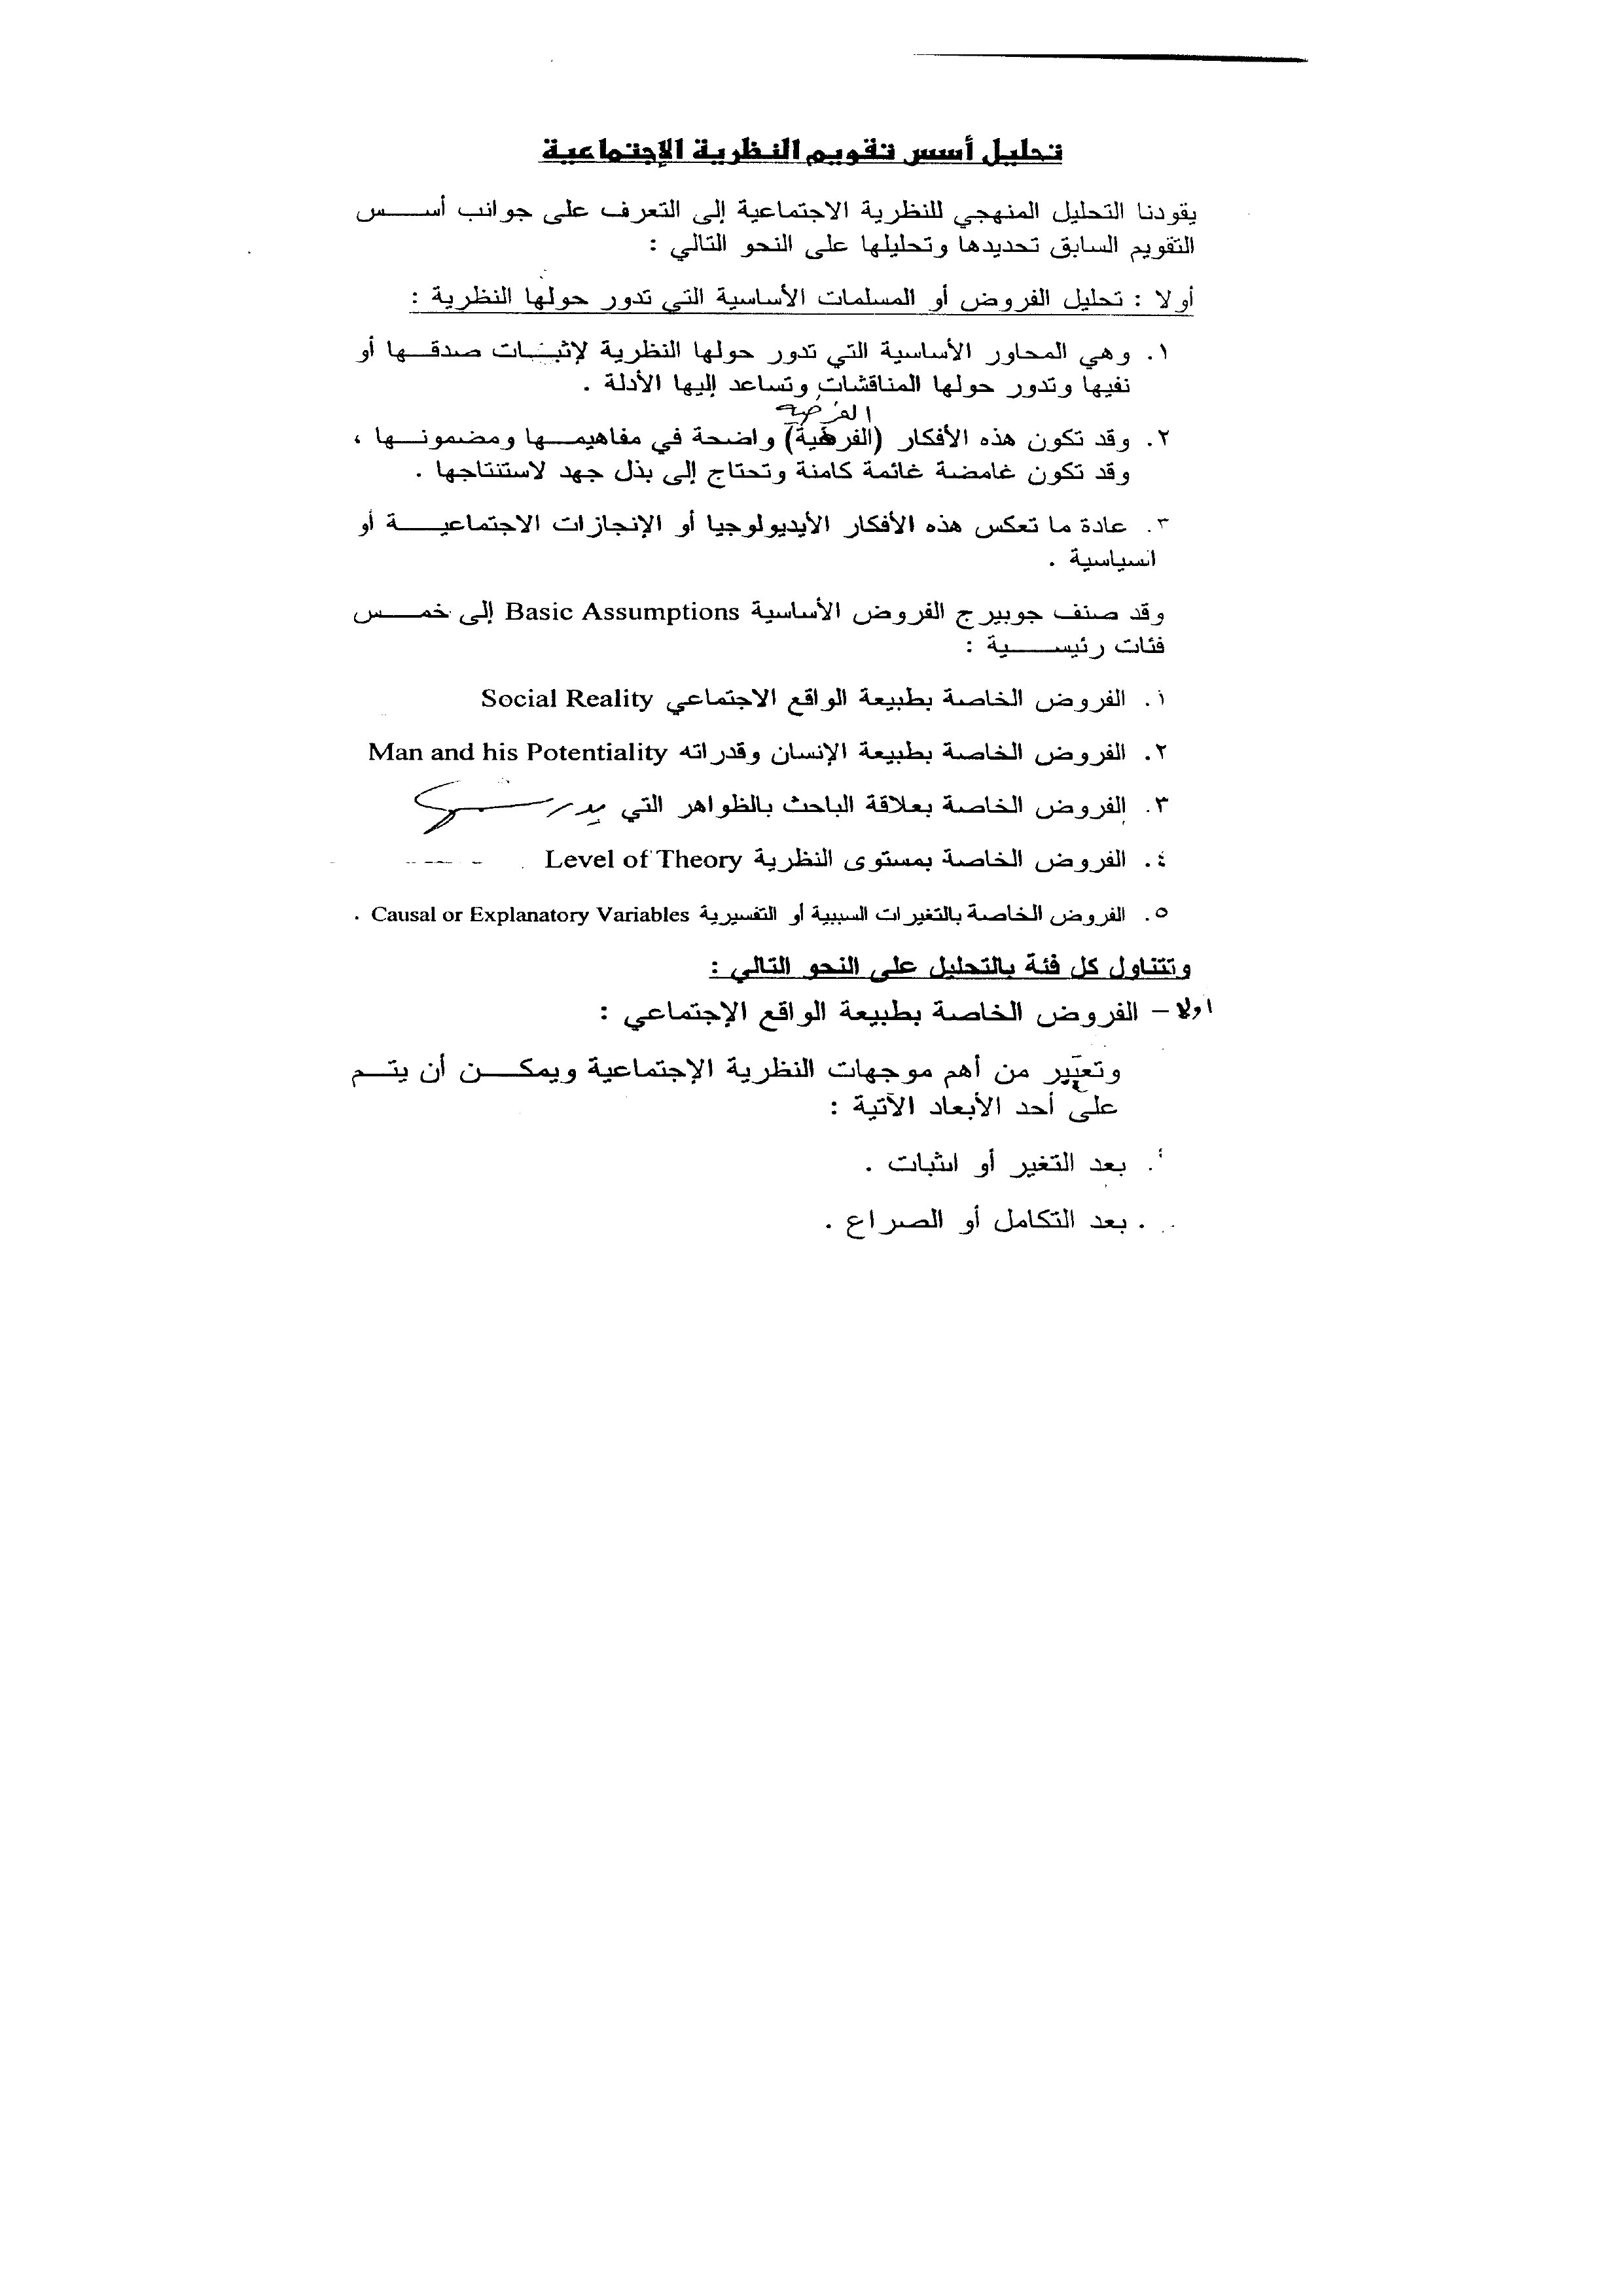 تحليل أسس تقويم النظرية الإجتماعية
يقودنا التحليل المنهجي للنظرية الاجتماعية إلى التعرف على جوانب أسس
التقويم السابق تحديدها وتحليلها على النحو التالي :
أولا : تحليل الفروض أو المسلمات الأساسية التي تدور حولها النظرية :
١. وهي المحاور الأساسية التي تدور حولها النظرية لإثبات صدقها أو
نفيها وتدور حولها المناقشات وتساعد إليها الأدلة .
الفرضية
٢. وقد تكون هذه الأفكار (الفرضية) واضحة في مفاهيمها ومضمونها ،
وقد تكون غامضة غائمة كامنة وتحتاج إلى بذل جهد لاستنتاجها .
٣. عادة ما تعكس هذه الأفكار الأيديولوجيا أو الإنجازات الاجتماعية أو
السياسية .
وقد صنف جوبيرج الفروض الأساسية Basic Assumptions إلى خمس
فئات رئيسية :
١. الفروض الخاصة بطبيعة الواقع الاجتماعي Social Reality
٢. الفروض الخاصة بطبيعة الإنسان وقدراته Man and his Potentiality
٣. الفروض الخاصة بعلاقة الباحث بالظواهر التي يدرسها
٤. الفروض الخاصة بمستوى النظرية Level of Theory
٥. الفروض الخاصة بالتغيرات السببية أو التفسيرية Causal or Explanatory Variables .
وتتناول كل فئة بالتحليل على النحو التالي :
اولا – الفروض الخاصة بطبيعة الواقع الإجتماعي :
وتعتبر من أهم موجهات النظرية الإجتماعية ويمكن أن يتم
على أحد الأبعاد الآتية :
أ. بعد التغير أو الثبات .
. بعد التكامل أو الصراع .